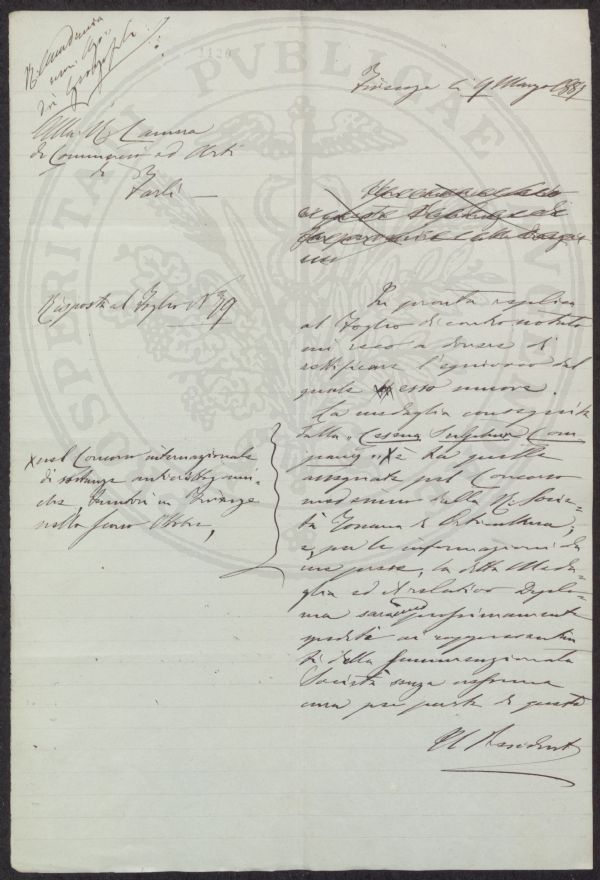 R. Accademia
Firenze li 9 Marzo 1881
Alla R. Camera
di Commercio ed Arti
di
Forlì
Risposta al Foglio N° 39
In pronta replica
al Foglio di contro notato
mi reco a dovere di
rettificare l'equivoco dal
quale esso muove.
La medaglia conseguita
dalla "Cesena Sulphur Com
pany" X è tra quelle
assegnate pel Concorso
medesimo dalla R. Socie-
tà Toscana di Orticultura,
e, per le informazioni da
me prese, la detta Meda-
glia ed il relativo Diplo-
ma saranno prossimamente
spediti ai rappresentan
ti della summenzionata
Società senza
una più parte di questa
Il Presidente
X nel Concorso internazionale
di sostanze anticrittogami-
che tenutosi in Firenze
nello scorso Ottobre,
PROSPERITATI PUBLICAE